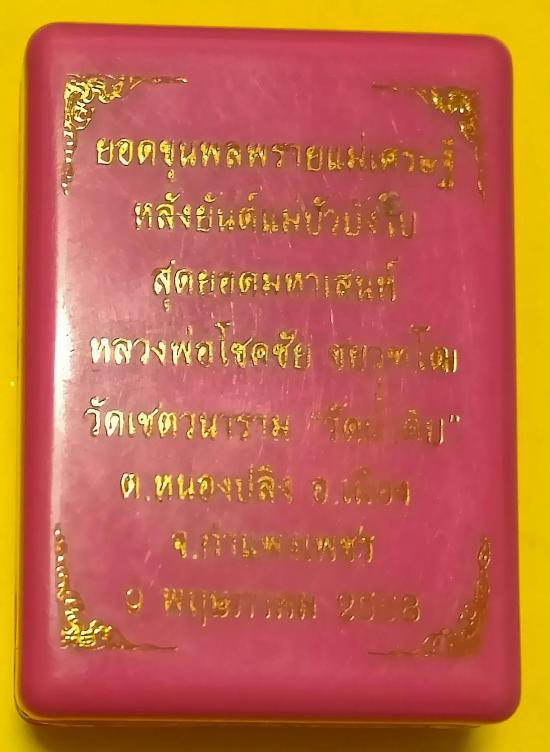 ยอดขุนพลพรายแม่เศรษฐี
หลังยันต์แม่บัวบังใบ
สุดยอดมหาเสน่ห์
หลวงพ่อโชคชัย
วัดเชตวนาราม
ต.หนองปลิง อ.เมือง
จ.กำแพงเพชร
9 พฤษภาคม